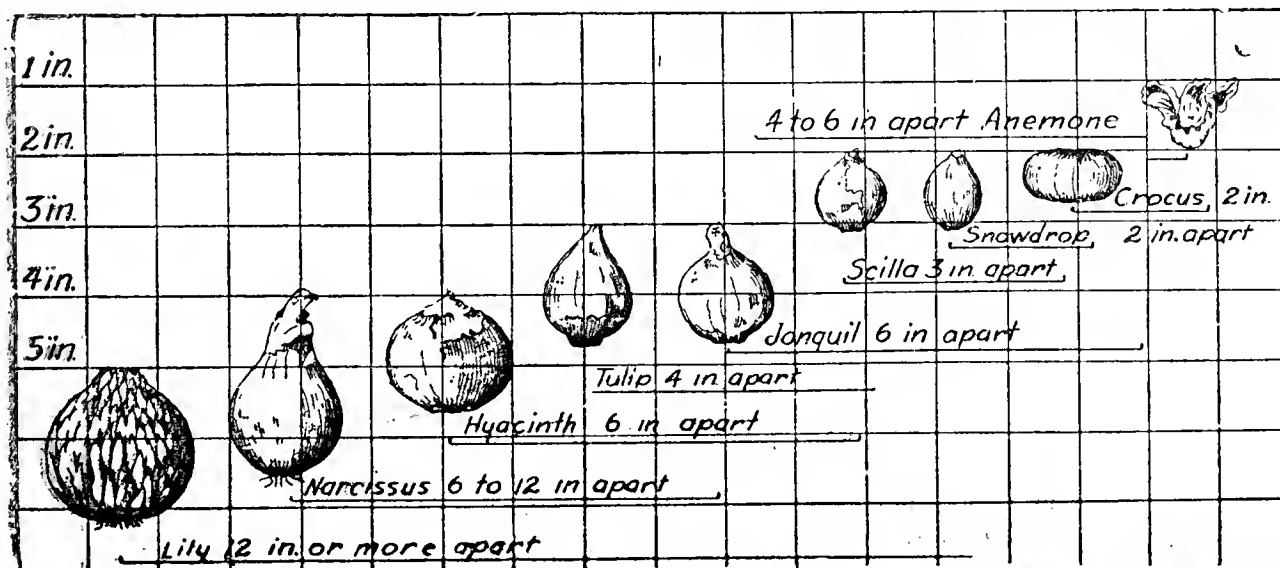 1 in.
2 in.
3 in.
4 in.
5 in.
4 to 6 in apart Anemone
Crocus, 2 in.
Snowdrop, 2 in. apart
Scilla 3 in apart
Jonquil 6 in apart
Tulip 4 in apart
Hyacinth 6 in apart
Narcissus 6 to 12 in apart
Lily 12 in. or more apart